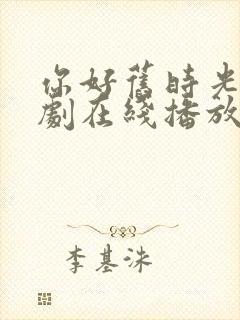 你好舊時光
劇在綫播放
李基洙